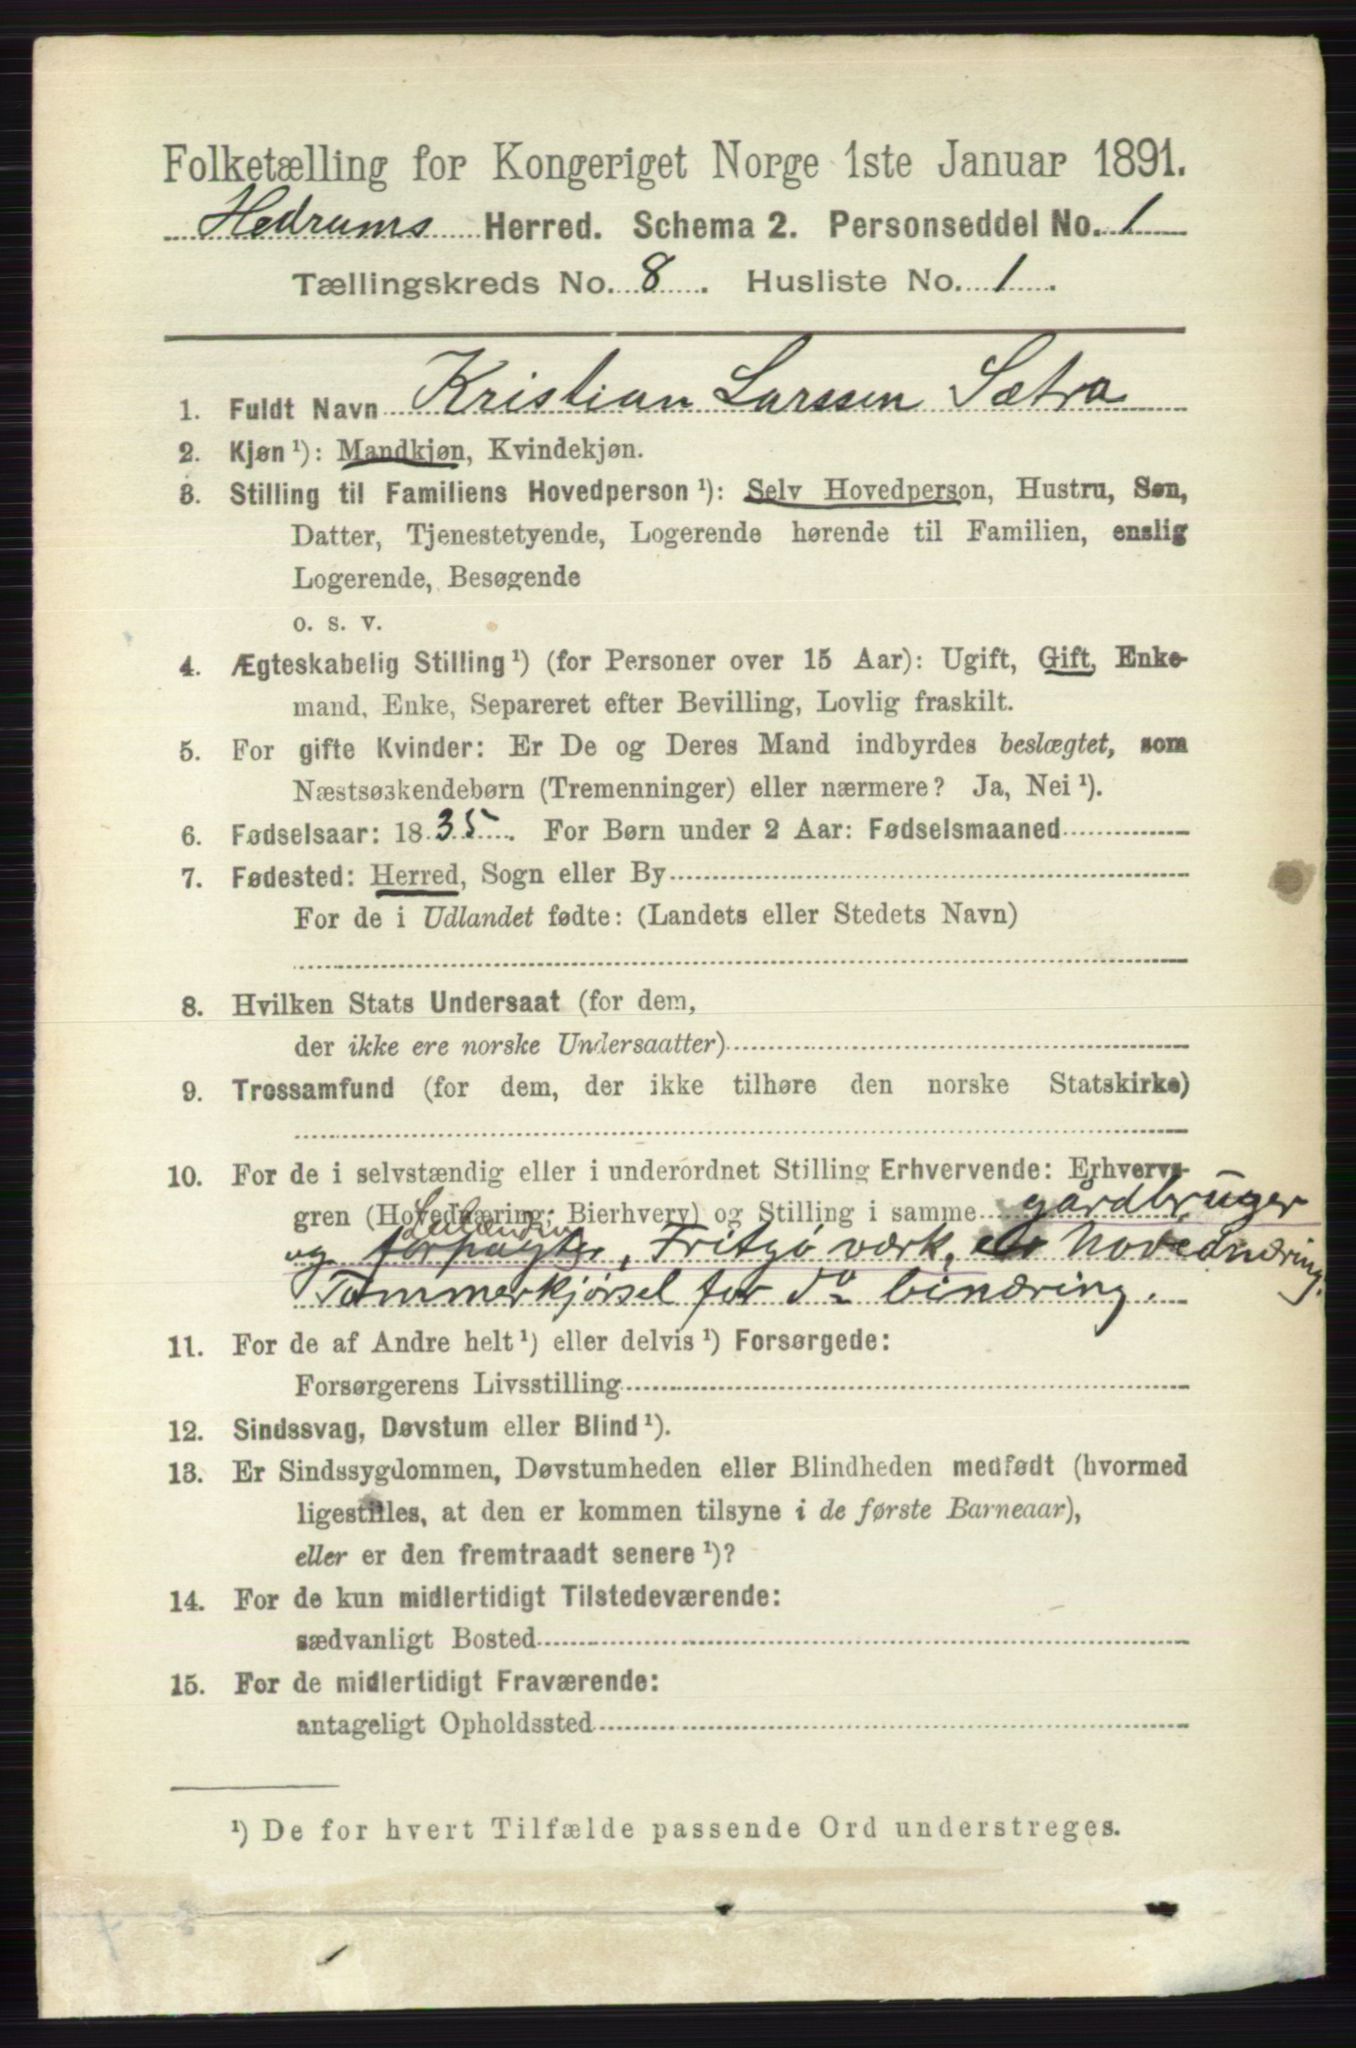 Folketælling for Kongeriget Norge 1ste Januar 1891.
Hedrums Herred. Schema 2. Personseddel No. 1
Tællingskreds No. 8. Husliste No. 1.
1. Fuldt Navn Kristian Larssen Sætra
2. Kjøn ¹): Mandkjøn, Kvindekjøn.
3. Stilling til Familiens Hovedperson ¹): Selv Hovedperson, Hustru, Søn,
Datter, Tjenestetyende, Logerende hørende til Familien, enslig
Logerende, Besøgende
o. s. v.
4. Ægteskabelig Stilling ¹) (for Personer over 15 Aar): Ugift, Gift, Enke-
mand, Enke, Separeret efter Bevilling, Lovlig fraskilt.
5. For gifte Kvinder: Er De og Deres Mand indbyrdes beslægtet, som
Næstsøskendebørn (Tremenninger) eller nærmere? Ja, Nei ¹).
6. Fødselsaar: 1835. For Børn under 2 Aar: Fødselsmaaned
7. Fødested: Herred, Sogn eller By
For de i Udlandet fødte: (Landets eller Stedets Navn)
8. Hvilken Stats Undersaat (for dem,
der ikke ere norske Undersaatter)
9. Trossamfund (for dem, der ikke tilhøre den norske Statskirke)
10. For de i selvstændig eller i underordnet Stilling Erhvervende: Erhvervs-
gren (Hovednæring; Bierhverv) og Stilling i samme gårdbruger
og forpagter, Fritzø værk, Hovednæring,
Tømmerkjørsel for do binæring.
11. For de af Andre helt ¹) eller delvis ¹) Forsørgede:
Forsørgerens Livsstilling
12. Sindssvag, Døvstum eller Blind ¹).
13. Er Sindssygdommen, Døvstumheden eller Blindheden medfødt (hvormed
ligestilles, at den er kommen tilsyne i de første Barneaar),
eller er den fremtraadt senere ¹)?
14. For de kun midlertidigt Tilstedeværende:
sædvanligt Bosted
15. For de midlertidigt Fraværende:
antageligt Opholdssted
¹) De for hvert Tilfælde passende Ord understreges.